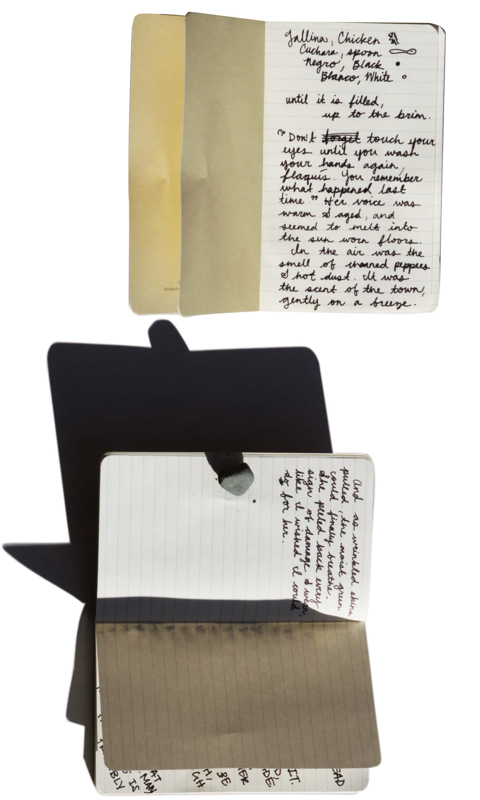 Gallina, Chicken
Cuchara, spoon
Negro, Black
Blanco, White
until it is filled,
up to the brim.
"Don't forget touch your
eyes until you wash
your hands again,
flaquis. You remember
what happened last
time." Her voice was
warm & aged, and
seemed to melt into
the sun worn floors.
In the air was the
smell of charred peppers
& hot dust. It was
the scent of the town,
gently on a breeze.
And as wrinkled skins
pulled, the moist green
could finally breathe.
She peeled back every
sign of damage & wear
like I wished I could
do for her.